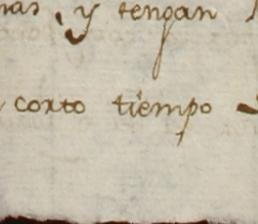 mas, y tengan
corto tiempo